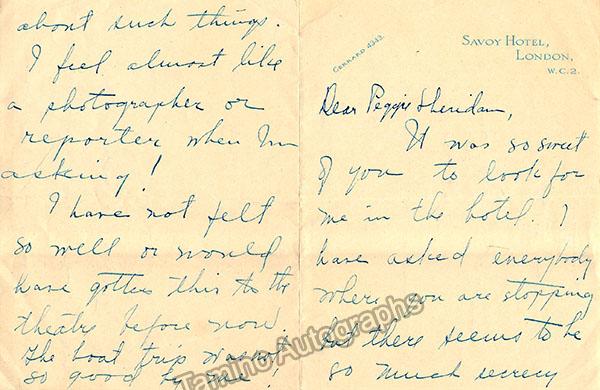 GERRARD 4343.
SAVOY HOTEL,
LONDON,
W.C.2.
Dear Peggie Sheridan,
It was so sweet
of you to look for
me in the hotel. I
have asked everybody
where you are stopping
but there seems to be
so much secrecy
about such things.
I feel almost like
a photographer or
reporter when I'm
asking!
I have not felt
so well or would
have gotten this to the
theatre before now.
The boat trip was not
so good to me!
Tamino Autographs